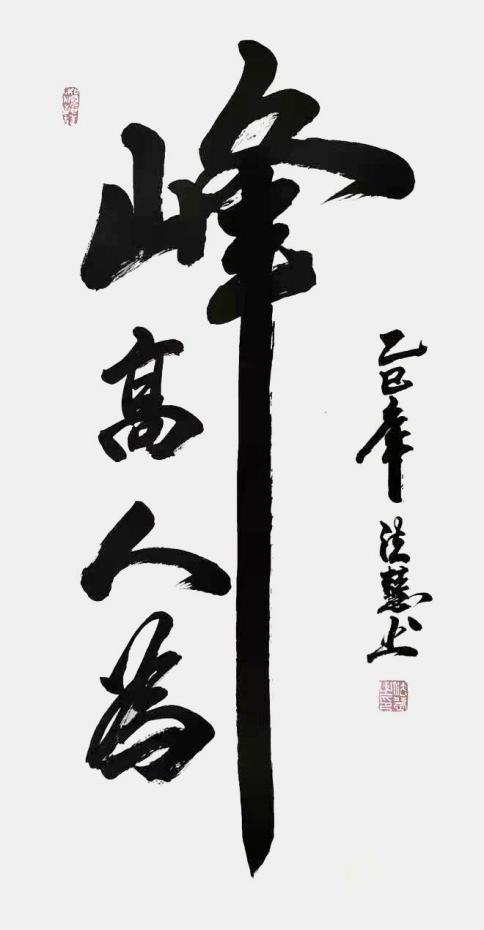 峰
高人为
乙巳年 法慧书